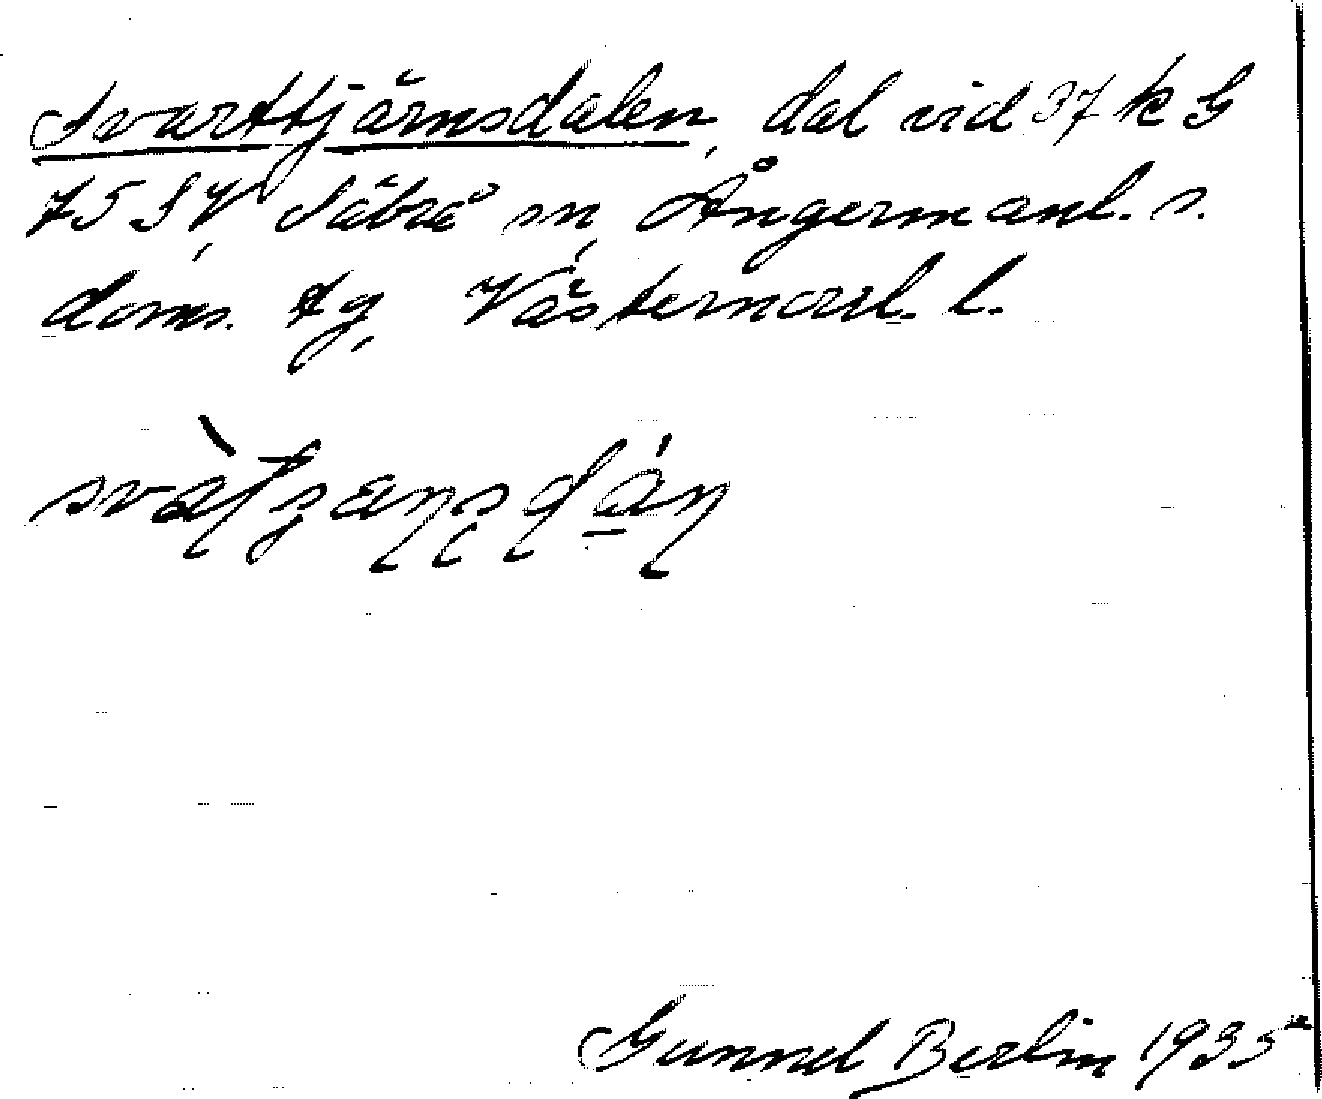 Svarttjärnsdalen, dal vid 37 k G
75 SV, Säbrå sn, Ångermanl. s.
doms. tg, Västernorrl. l.
Gunnel Berlin 1935